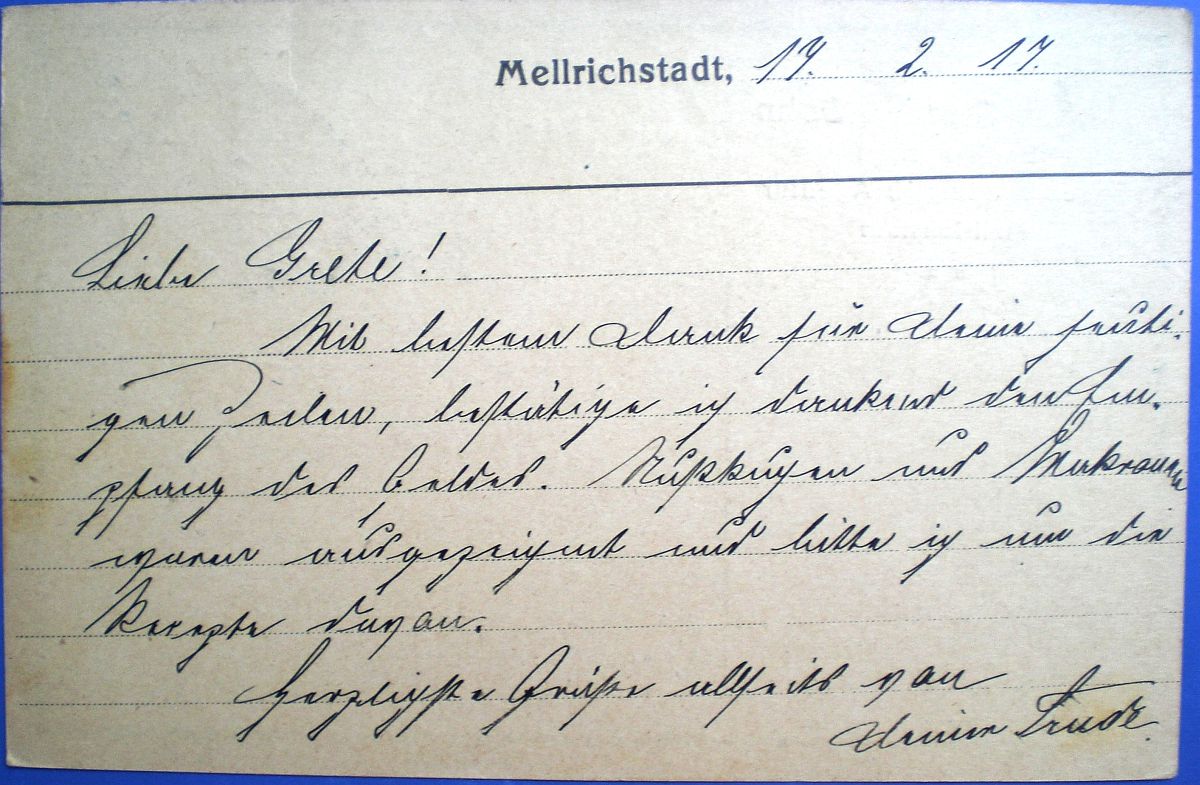 Mellrichstadt, 17. 2. 17.
Liebe Grete!
Mit bestem Dank für Deine heuti-
gen Zeilen, bestätige ich dankend den Em-
pfang des Geldes. Nußkugen und Makronen
waren ausgezeichnet und bitte ich um die
Rezepte davon.
Herzlichste Grüße allseits von
Deiner Trude.